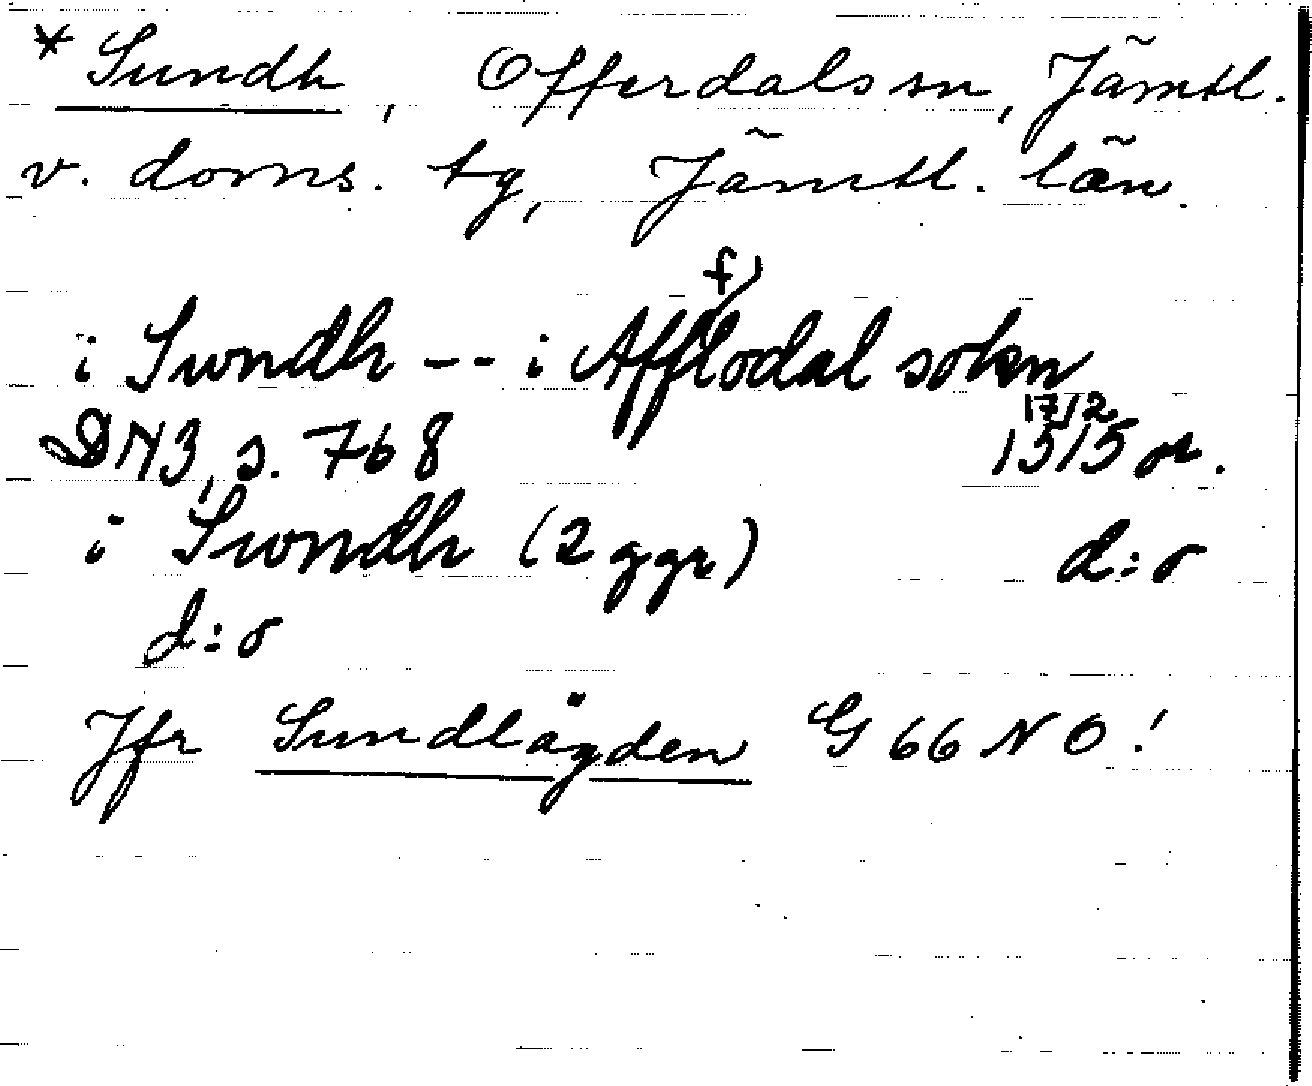 * Sundh, Offerdals sn, Jämtl.
v. doms. tg, Jämtl. län.
i Swndh -- i Afflodal sokn
DN3, s. 768 17/2 1515 or.
i Swndh (2 ggr) d:o
d:o
Jfr Sundlägden G 66 NO!